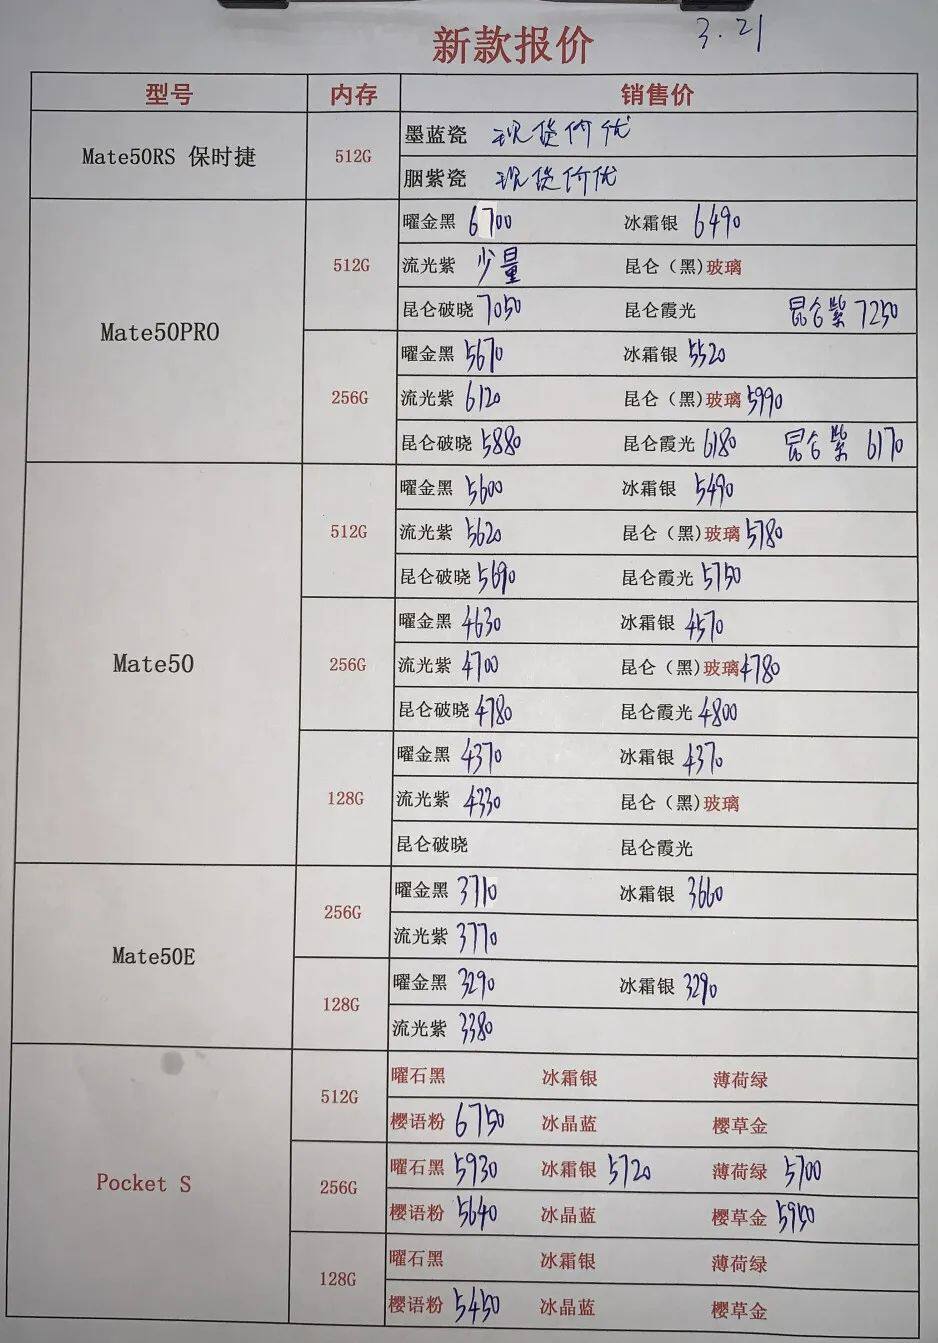 新款报价 3.21
型号 内存 销售价
Mate50RS 保时捷 512G 墨蓝瓷 现货价优
胭紫瓷 现货价优
Mate50PRO 512G 曜金黑 6700 冰霜银 6490
流光紫 少量 昆仑（黑)玻璃
昆仑破晓 7050 昆仑霞光 昆仑紫 7250
256G 曜金黑 5670 冰霜银 5520
流光紫 6120 昆仑（黑)玻璃 5990
昆仑破晓 5880 昆仑霞光 6180 昆仑紫 6170
Mate50 512G 曜金黑 5600 冰霜银 5490
流光紫 5620 昆仑（黑)玻璃 5780
昆仑破晓 5690 昆仑霞光 5750
256G 曜金黑 4630 冰霜银 4570
流光紫 4700 昆仑（黑)玻璃 4780
昆仑破晓 4780 昆仑霞光 4800
128G 曜金黑 4370 冰霜银 4370
流光紫 4330 昆仑（黑)玻璃
昆仑破晓 昆仑霞光
Mate50E 256G 曜金黑 3710 冰霜银 3660
流光紫 3770
128G 曜金黑 3290 冰霜银 3290
流光紫 3380
Pocket S 512G 曜石黑 冰霜银 薄荷绿
樱语粉 6750 冰晶蓝 樱草金
256G 曜石黑 5930 冰霜银 5720 薄荷绿 5700
樱语粉 5640 冰晶蓝 樱草金 5950
128G 曜石黑 冰霜银 薄荷绿
樱语粉 5450 冰晶蓝 樱草金